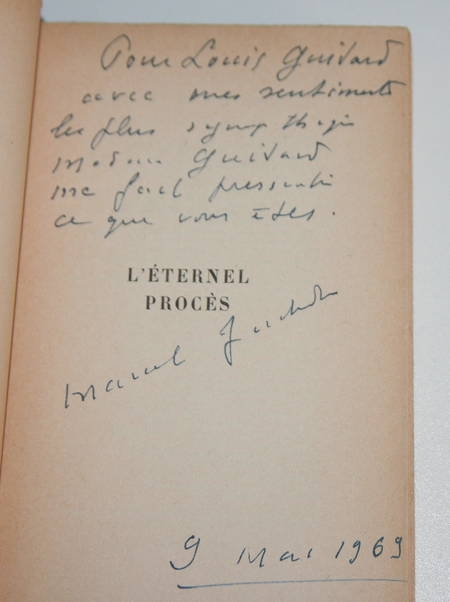 Pour Louis Guivard
avec mes sentiments
les plus sympathiques
Madame Guivard
me fait pressentir
ce que vous êtes.
L'ÉTERNEL
PROCÈS
Marcel Jouhandeau
9 Mai 1969